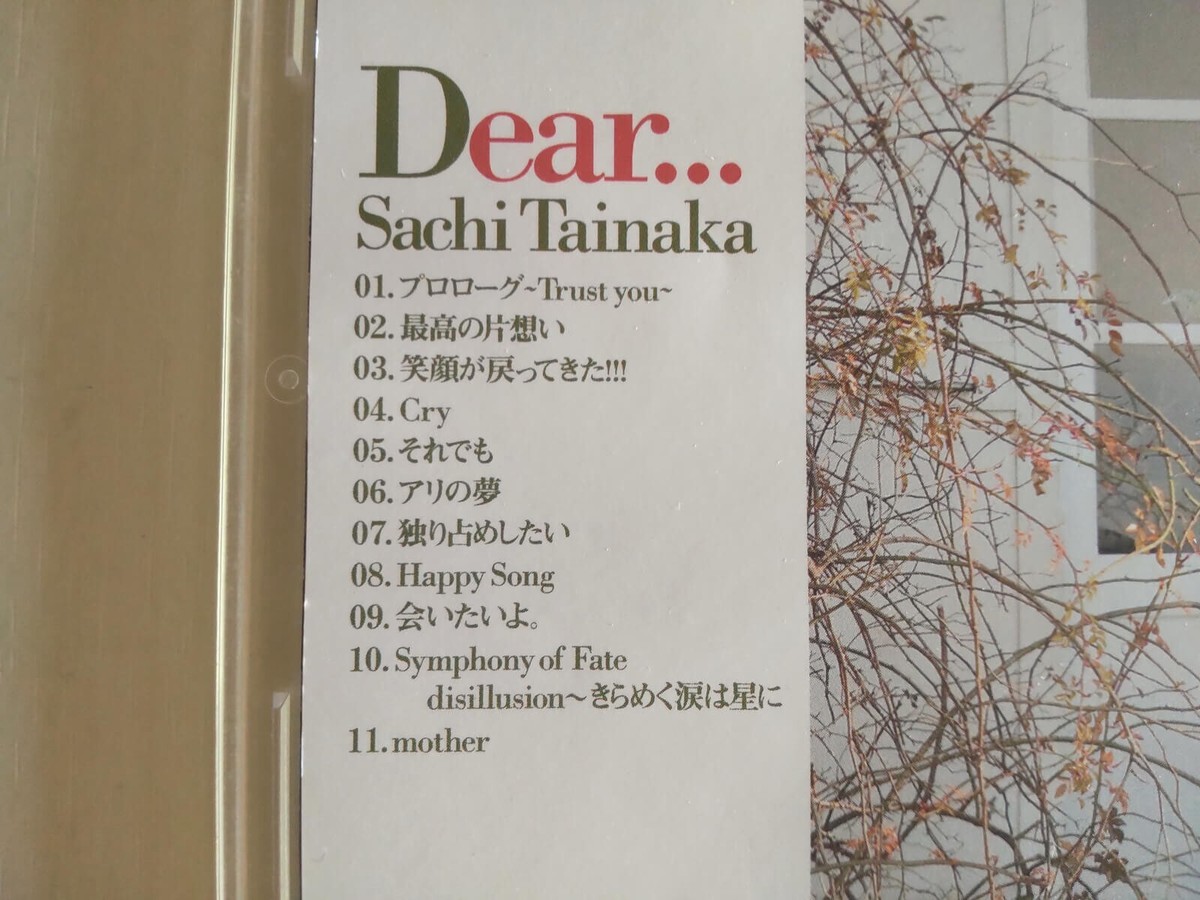 Dear...
Sachi Tainaka
01. プロローグ~Trust you~
02. 最高の片想い
03. 笑顔が戻ってきた!!!
04. Cry
05. それでも
06. アリの夢
07. 独り占めしたい
08. Happy Song
09. 会いたいよ。
10. Symphony of Fate
disillusion～きらめく涙は星に
11. mother